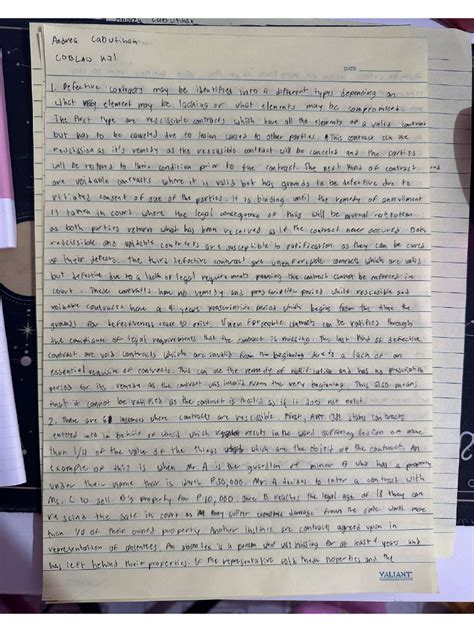 Andrea Cabutihan
COBLAW W21
DATE
1. Defective contracts may be identified into 4 different types depending on
what key element may be lacking or what elements may be compromised.
The first type are rescissible contracts which have all the elements of a valid contract
but has to be canceled due to lesion caused to other parties. This contract can use
rescission as it's remedy as the rescissible contract will be canceled and the parties
will be restored to their condition prior to the contract. The next kind of contract
are voidable contracts where it is valid but has grounds to be defective due to
vitiated consent of one of the parties. It is binding until the remedy of annullment
is taken in court where the legal consequence of this will be mutual restitution
as both parties return what has been received as if the contract never occured. Both
rescissible and voidable contracts are susceptible to ratification as they can be cured
of their defects. The third defective contract are unenforceable contracts which are valid
but defective due to a lack of legal requirements meaning the contract cannot be enforced in
court. These contracts have no remedy and prescriptive period while rescissible and
voidable contracts have a 4-years prescriptive period which begins from the time the
grounds for defectiveness cease to exist. Unenforceable contracts can be ratified through
the compliance of legal requirements that the contract is missing. The last kind of defective
contract are void contracts which are invalid from the beginning due to a lack of an
essential requisite of contracts. This can use the remedy of and has no prescriptive
period for its remedy as the contract was invalid from the very beginning. This also means
that it cannot be ratified as the contract is treated as if it does not exist.
2. There are instances where contracts are rescissible. First, ART 1381 states contracts
entered into in behalf of ward which results in the ward suffering lesion of more
than 1/4 of the value of the things which are the object of the contract. An
example of this is when Mr. A is the guardian of minor B who has a property
under their name that is worth P50,000. Mr. A decides to enter a contract with
Ms. C to sell B's property for P10,000. Once B reaches the legal age of 18 they can
rescind the sale in court as they suffer damage from the sale worth more
than 1/4 of their owned property. Another instance are contracts agreed upon in
representation of absentees. An absentee is a person who was missing for at least years and
has left behind their properties. If the representative sold these properties and the
VALIANT